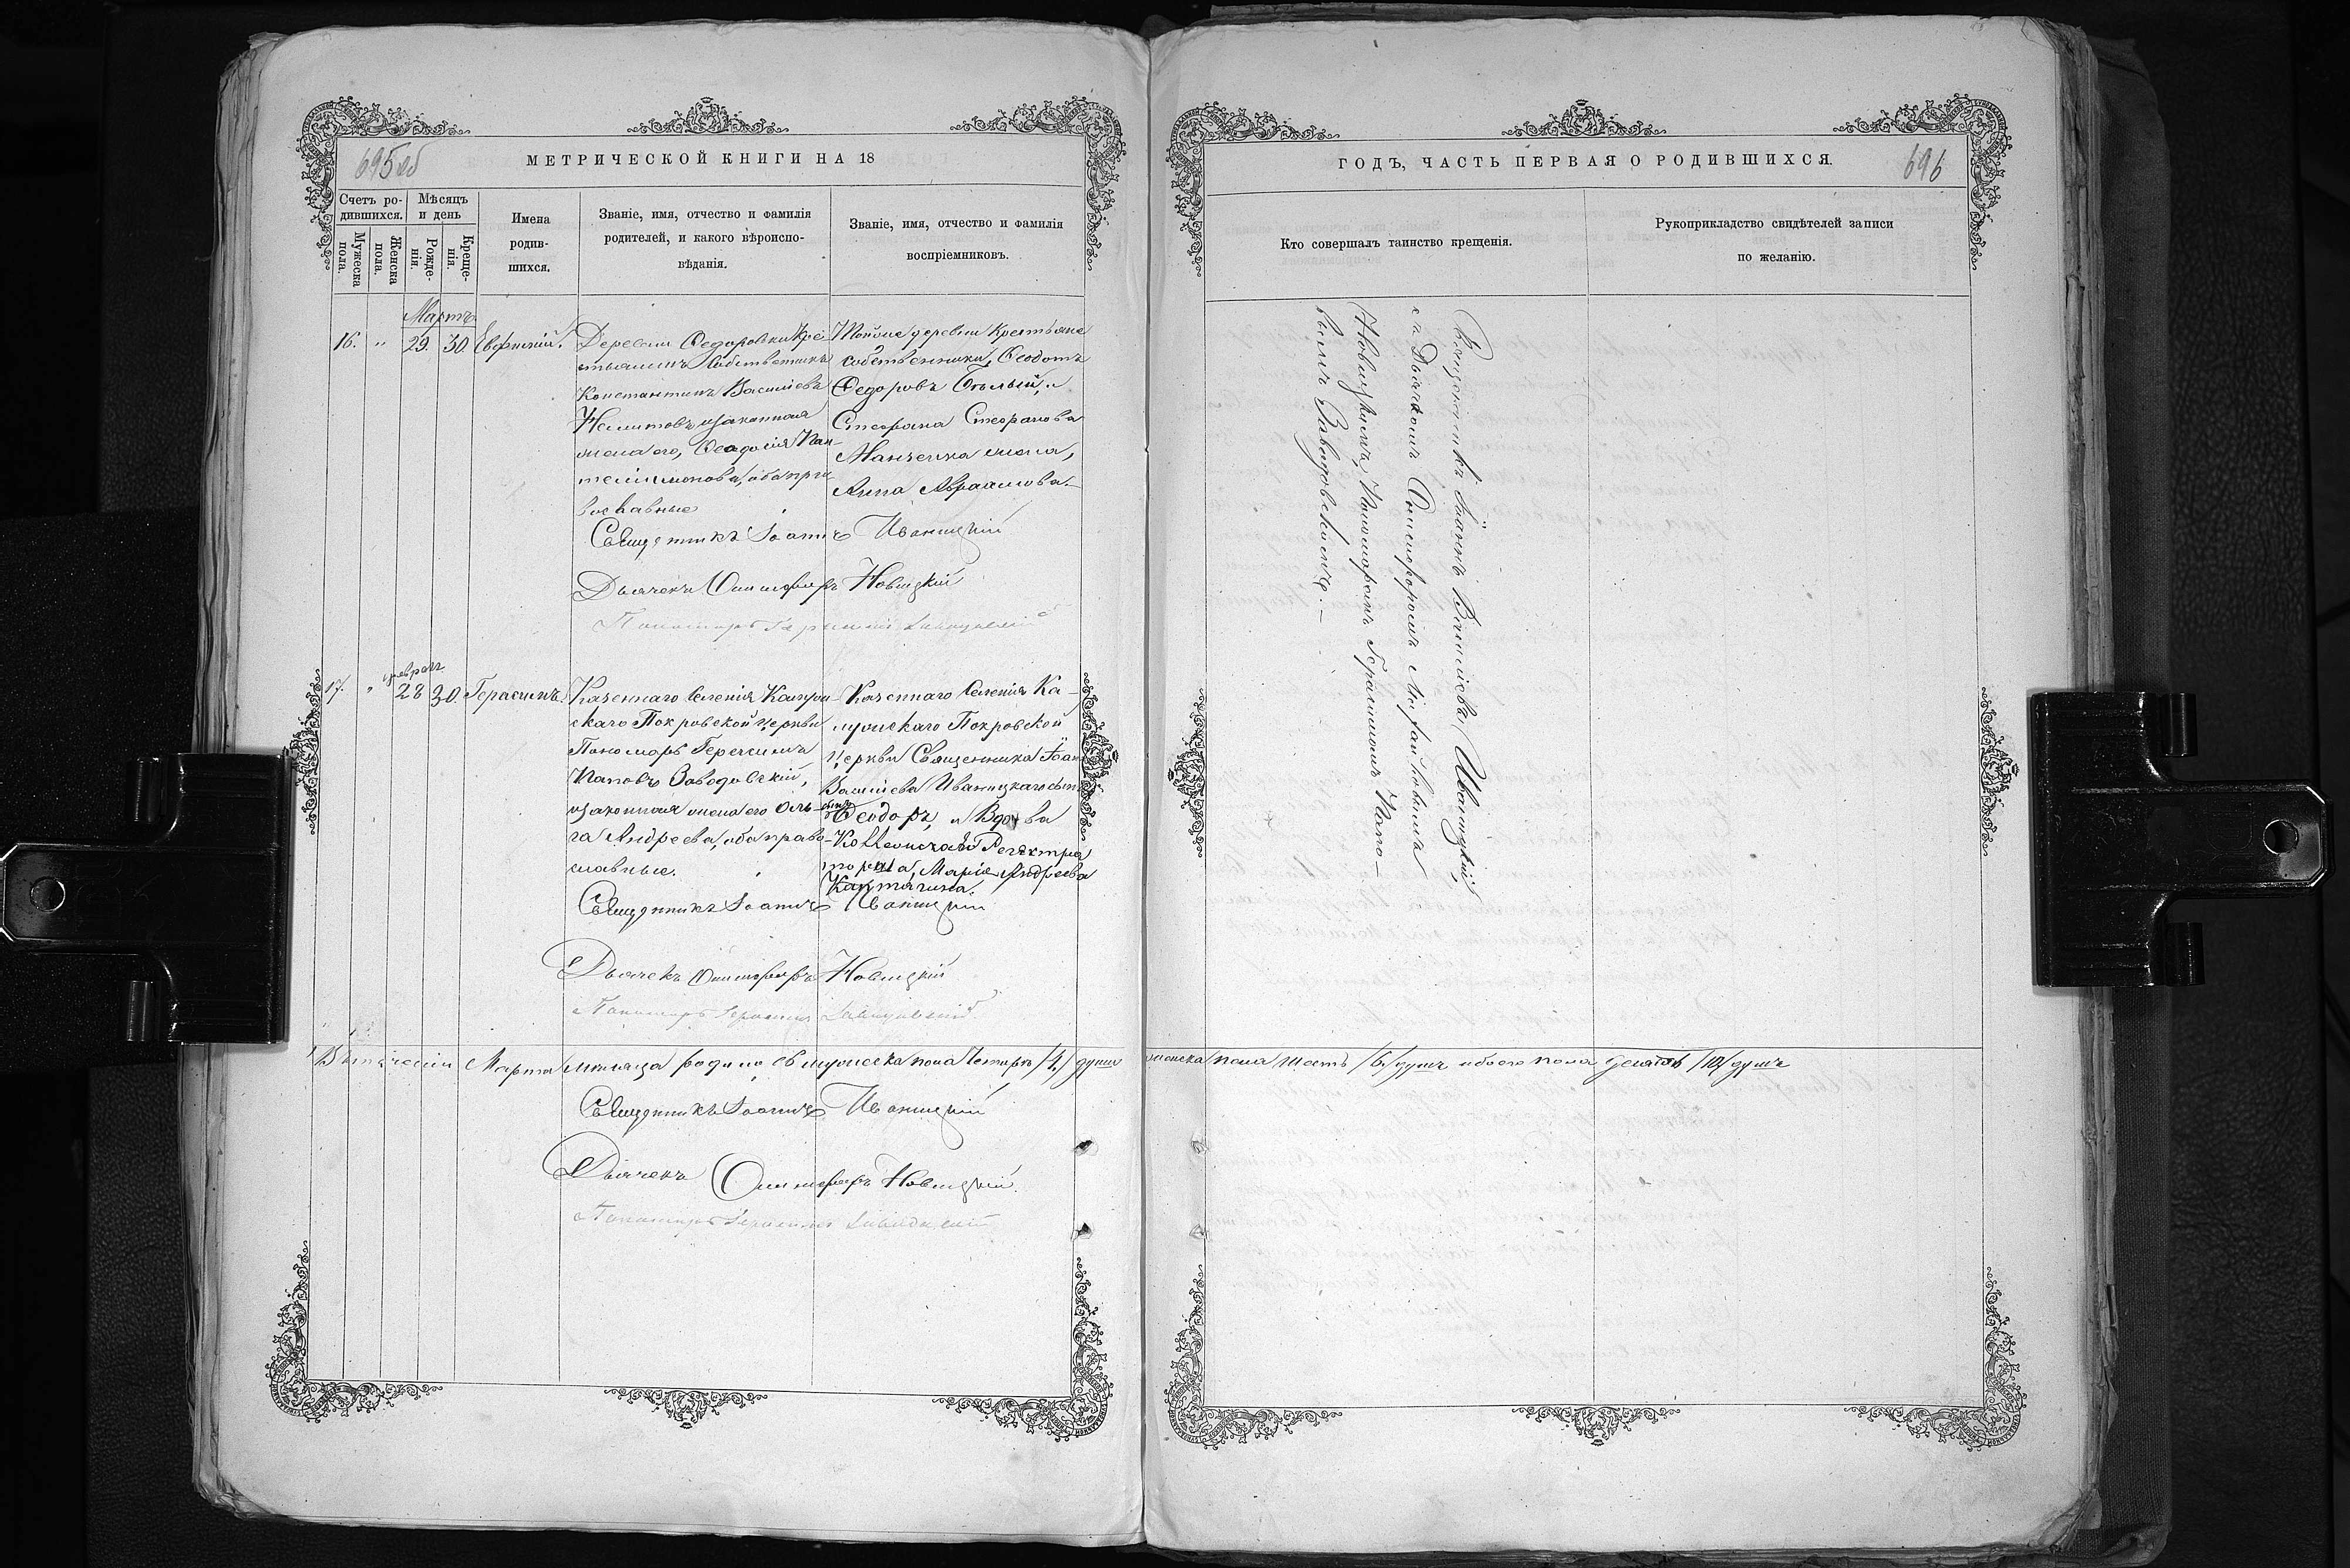 695об
МЕТРИЧЕСКОЙ КНИГИ НА 18
Счетъ ро-
дившихся.
Мѣсяцъ
и день
Мужеска
пола.
Женска
пола.
Рожде-
нія.
Креще-
нія.
Имена
родив-
шихся.
Званіе, имя, отчество и фамилія
родителей, и какого вѣроиспо-
вѣданія.
Званіе, имя, отчество и фамилія
воспріемниковъ.
Мартъ
16. " 29. 30. Евфимій.
Деревни Федоровки Кре-
стьянинъ собственникъ
Константинъ Васильевъ
изаконная
жена его, Феодосія Пан-
телиимонова, оба пра-
вославные
Тойже деревни Крестьяне
собственники, Феодотъ
Федоровъ Бѣлый, и
Стефана Стефанова
Манченка жена,
Анна Авраамова.
Священникъ Іоаннъ Иваницкій
Дьячекъ Онисифоръ Новицкій
Пономарь Герасимъ Заводовскій
17. " Февраля 28 30. Герасимъ.
Казеннаго селенія
скаго Покровской церкви
Пономарь Герасимъ
Заводовскій,
изаконная жена его Оль-
га Андреева, оба право-
славные.
Казеннаго Селенія Ка-
Покровской
церкви Священника Іоан
Васильева Иваницкаго сынъ
Феодоръ, и Вдова
Коллежскаго Регистра
тора, Марія Андреева
Священникъ Іоаннъ Иваницкій
Дьячекъ Онисифоръ Новицкій
Пономарь Герасимъ Заводовскій
Въ теченіи Марта мѣсяца родилось мужеска пола Четыре /4/ души
Священникъ Іоаннъ Иваницкій
Дьячекъ Онисифоръ Новицкій.
Пономарь Герасимъ Заводовскій
ГОДЪ, ЧАСТЬ ПЕРВАЯ О РОДИВШИХСЯ.
696
Кто совершалъ таинство крещенія.
Рукоприкладство свидѣтелей записи
по желанію.
Священникъ Іоаннъ Васильевъ Иваницкій,
съ Дьячкомъ Онисифоромъ
Новицкимъ, Пономаремъ Герасимомъ
Заводовскимъ.—
женска пола Шесть /6/ душъ обоего пола десять /10/ душъ